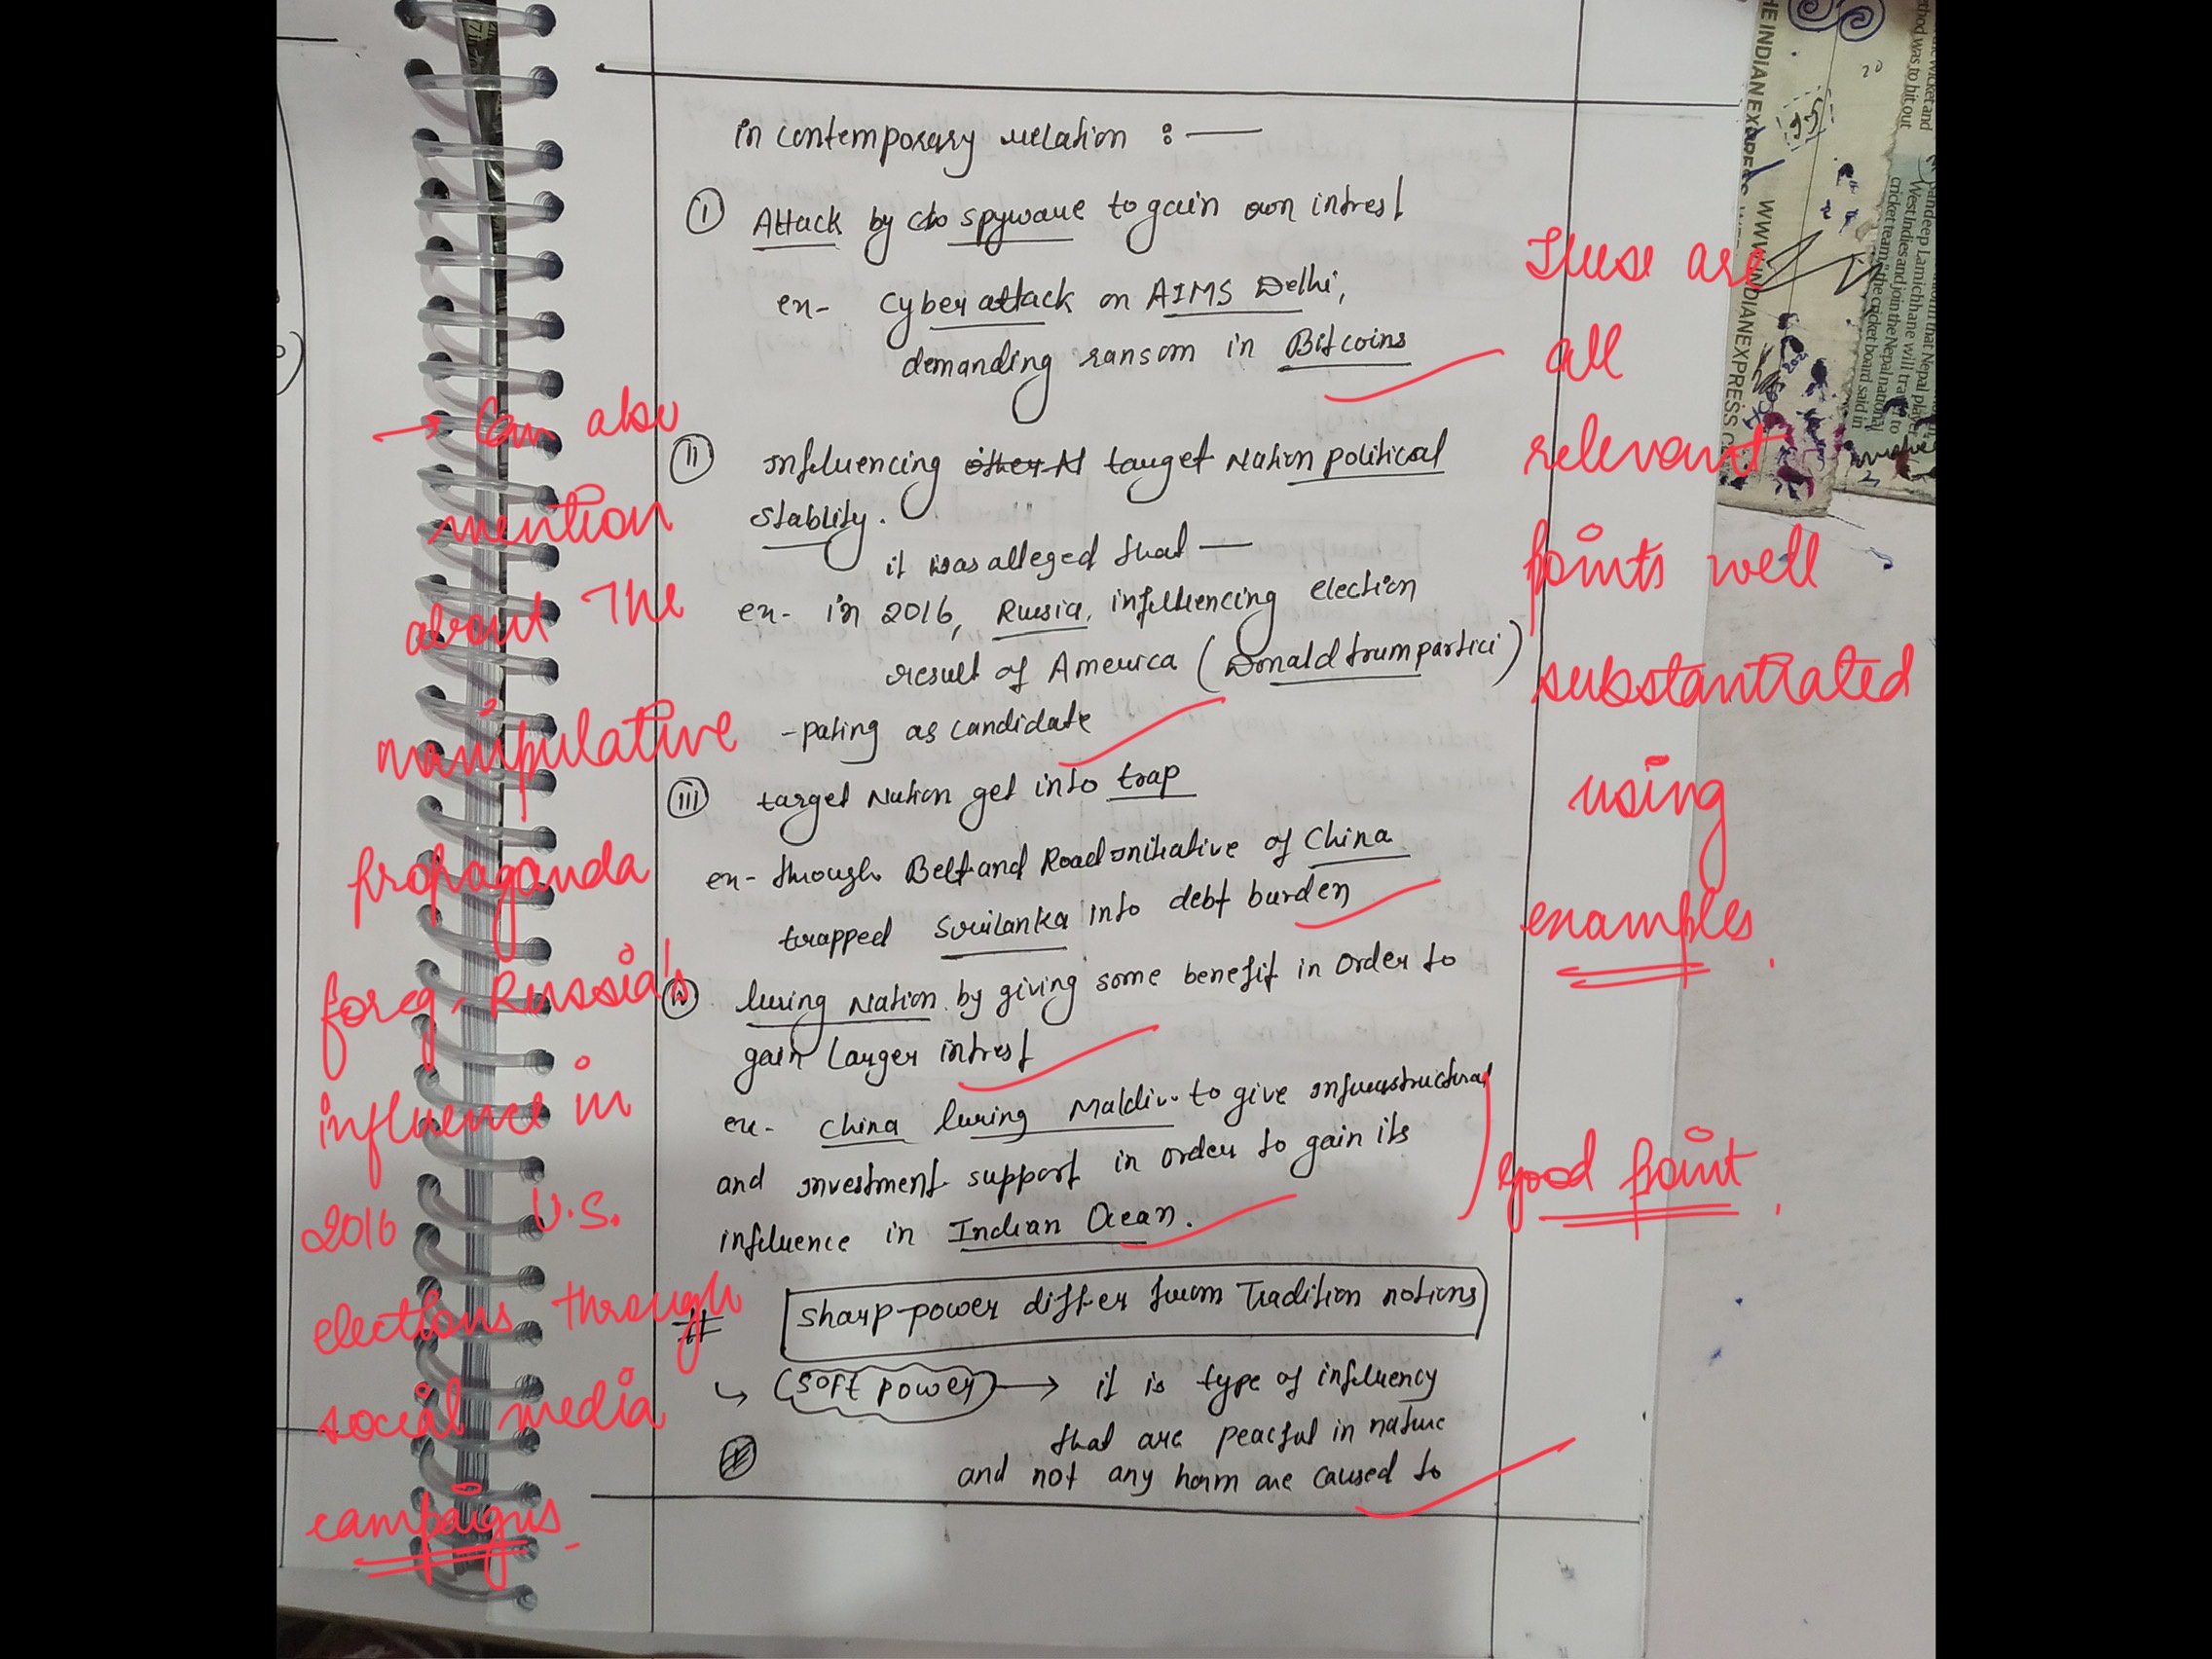 in contemporary relation :—
(I) Attack by spyware to gain own intrest
ex- Cyber attack on AIMS Delhi,
demanding ransom in Bitcoins
(II) Influencing other N target Nation political
stablity.
it was alleged that —
ex- in 2016, Russia, influencing election
result of America (Donald trum partici)
-pating as candidate
(III) target Nation get into trap
ex- through Belt and Road Initiative of China
trapped Srilanka into debt burden
luring Nation by giving some benefit in order to
gain larger intrest
ex- China luring Maldiv to give infrastructural
and investment support in order to gain its
influence in Indian Ocean.
# Sharp-power differ from Tradition notions
↳ Soft power → it is type of influency
that are peacful in nature
and not any harm are caused to
→ Can also
mention
about the
manipulative
propaganda
for eg, Russia's
influence in
2016 U.S.
elections through
social media
campaigns.
These are
all
relevant
points well
substantiated
using
examples.
good point.
THE INDIAN EXPRESS
WWW.INDIANEXPRESS.C
the wicket and
thod was to hit out
that Nepal player
Sandeep Lamichhane will travel to
West Indies and join the Nepal national
cricket team," the cricket board said in